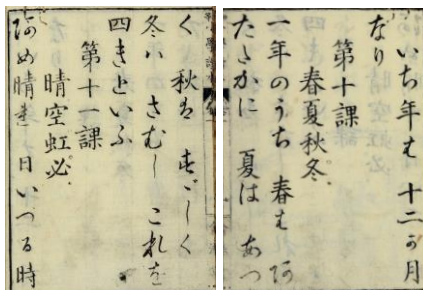 いち年は 十二か月
なり
第十課
春夏秋冬
一年のうち 春は あ
たゝかに 夏は あつ
く 秋は すゞしく
冬ハ さむし これを
四きといふ
第十一課
晴空虹必
あめ晴れ 日いつる時